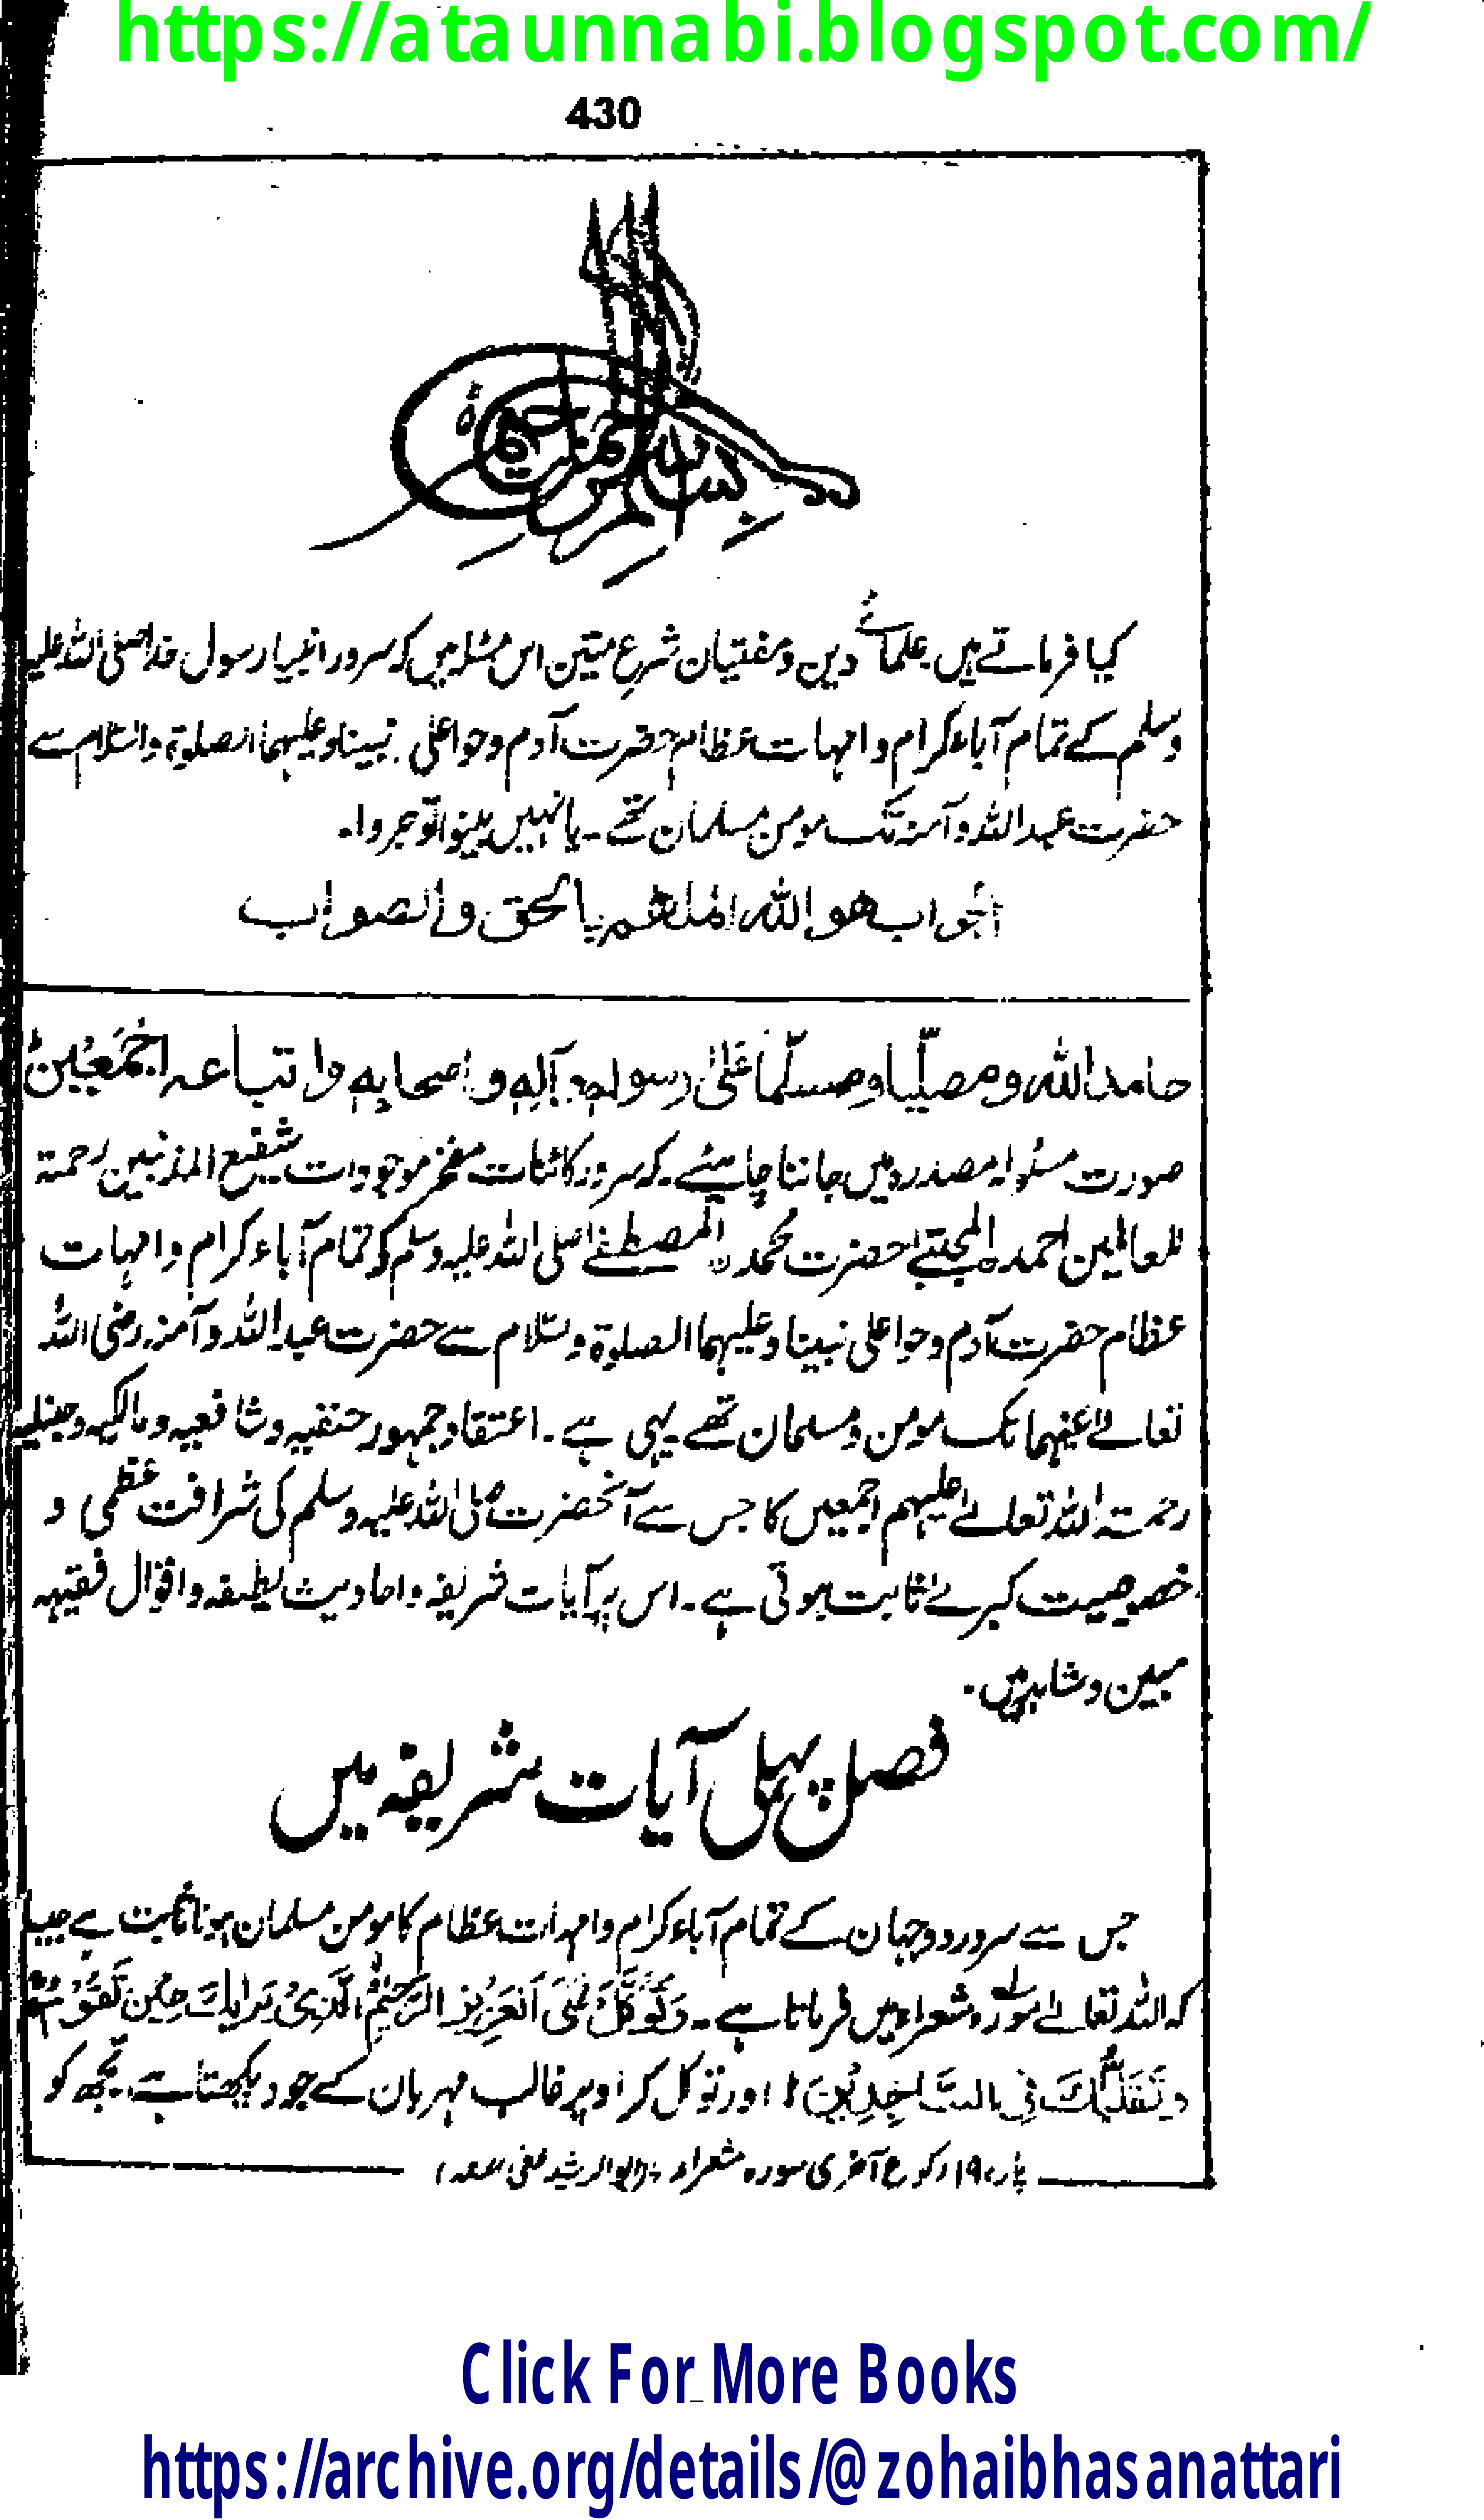 https://ataunnabi.blogspot.com/
430
بسم الله الرحمن الرحيم
کیا فرماتے ہیں علمائے دین و مفتیان شرع متین اس مسئلہ میں کہ سرور انبیا رسول خدا صلی اللہ علیہ
وسلم کے تمام آباء کرام و امہات عظام حضرت آدم و حوا علی نبینا و علیہما الصلوۃ والسلام سے
حضرت عبداللہ و آمنہ تک مومن مسلمان تھے۔ یا نہیں بینوا توجروا۔
الجواب هو الله الملهم بالحق والصواب
حامدا لله ومصلّيا ومسلّما علیٰ رسولہ وآلہٖ واصحابہٖ واتباعہ اجمعین
صورت مسئولہ مصدرہ میں جاننا چاہیئے۔ کہ سرور کائنات مفخر موجودات شفیع المذنبین رحمۃ
للعالمین احمد مجتبےٰ حضرت محمد ن المصطفےٰ صلی اللہ علیہ وسلم کی تمام آباء کرام و امہات
عظام حضرت آدم و حوا علی نبینا و علیہما الصلوۃ وسلام سے حضرت عبداللہ و آمنہ رضی اللہ
تعالےٰ عنہما تک مومن و مسلمان تھے یہی ہے۔ اعتقاد جمہور حنفیہ و شافعیہ و مالکیہ و حنبلیہ
رحمتہ اللہ تعالےٰ علیہم اجمعیں کا جس سے آنحضرت صلی اللہ علیہ وسلم کی شرافت عظمی و
خصوصیت کبرےٰ ثابت ہوتی ہے۔ اس پر آیات شریفہ و احادیث لطیفہ و اقوال فقیہہ
مبین و شاہد ہیں۔
فصل پہلی آیات شریفہ میں
جس سے سرور دو جہان کے تمام آباء کرام و امہات عظام کا مومن مسلمان ہونا ثابت ہے جیسا
کہ اللہ تعالےٰ سورہ شعراء میں فرماتا ہے۔ وَتَوَكَّلْ عَلَى الْعَزِيْزِ الرَّحِيْمِ الَّذِىْ يَرَاكَ حِيْنَ تَقُوْمُ
وَتَقَلُّبَكَ فِى السّٰجِدِيْنَ اور توکل کر اوپر غالب مہربان کے جو دیکھتا ہے۔ تجھ کو
پارہ ۱۹ رکوع آخری سورہ شعراء (ابوالرشید عفی عنہ)
Click For More Books
https://archive.org/details/@zohaibhasanattari